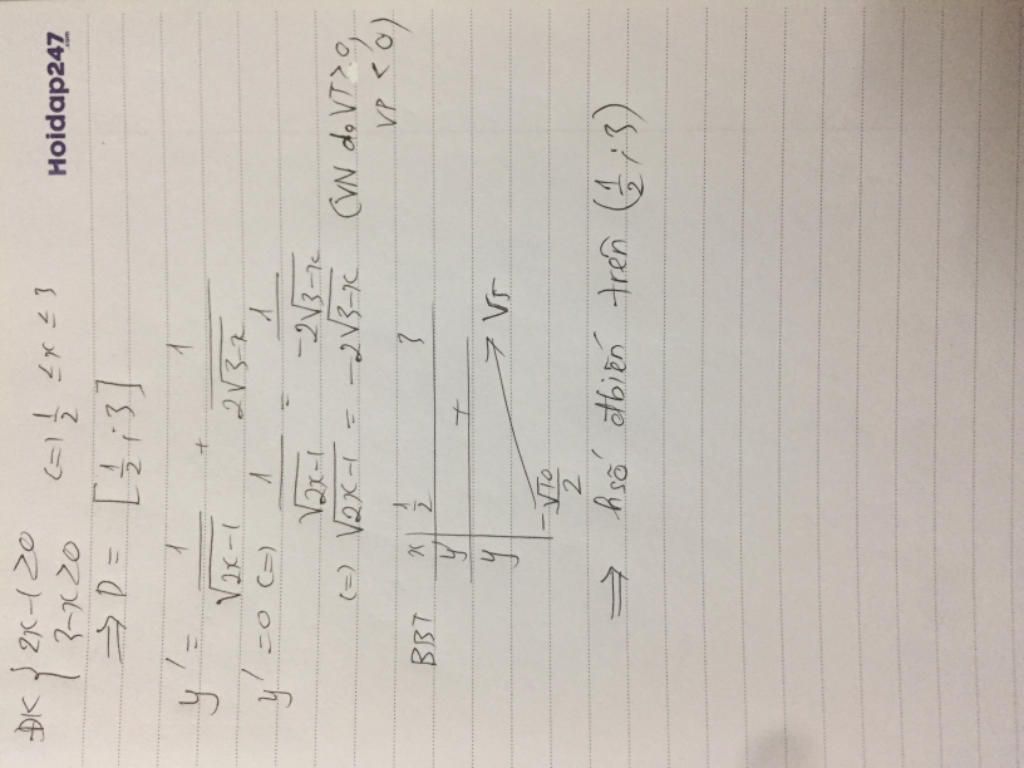 Hoidap247.com
ĐK { 2x-1 ≥ 0
3-x ≥ 0 (=) 1/2 ≤ x ≤ 3
=> D = [1/2 ; 3]
y' = 1/√(2x-1) + 1/(2√(3-x))
y' = 0 (=) 1/√(2x-1) = 1/(-2√(3-x))
(=) √(2x-1) = -2√(3-x) (VN do VT>0,
VP < 0)
BBT x 1/2 3
y' +
y -√10/2 √5
=> h số đbiến trên (1/2 ; 3)